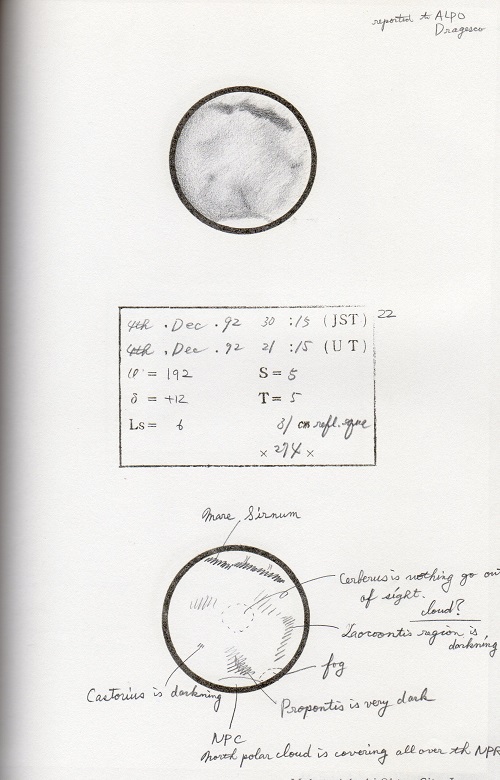 reported to ALPO
Dragesco
4th . Dec . 92 30 : 15 (JST)
22
4th , Dec . 92 21 : 15 (UT)
= 192 S = 5
δ = +12 T = 5
Ls = 6 31 cm refl. eque
× 274 ×
Mare Sirnum
Cerberus is nothing go out
of sight.
cloud?
Laocoontis region is
darkning
fog
Castorius is darkning
Propontis is very dark
NPC
North polar cloud is covering all over th NPR